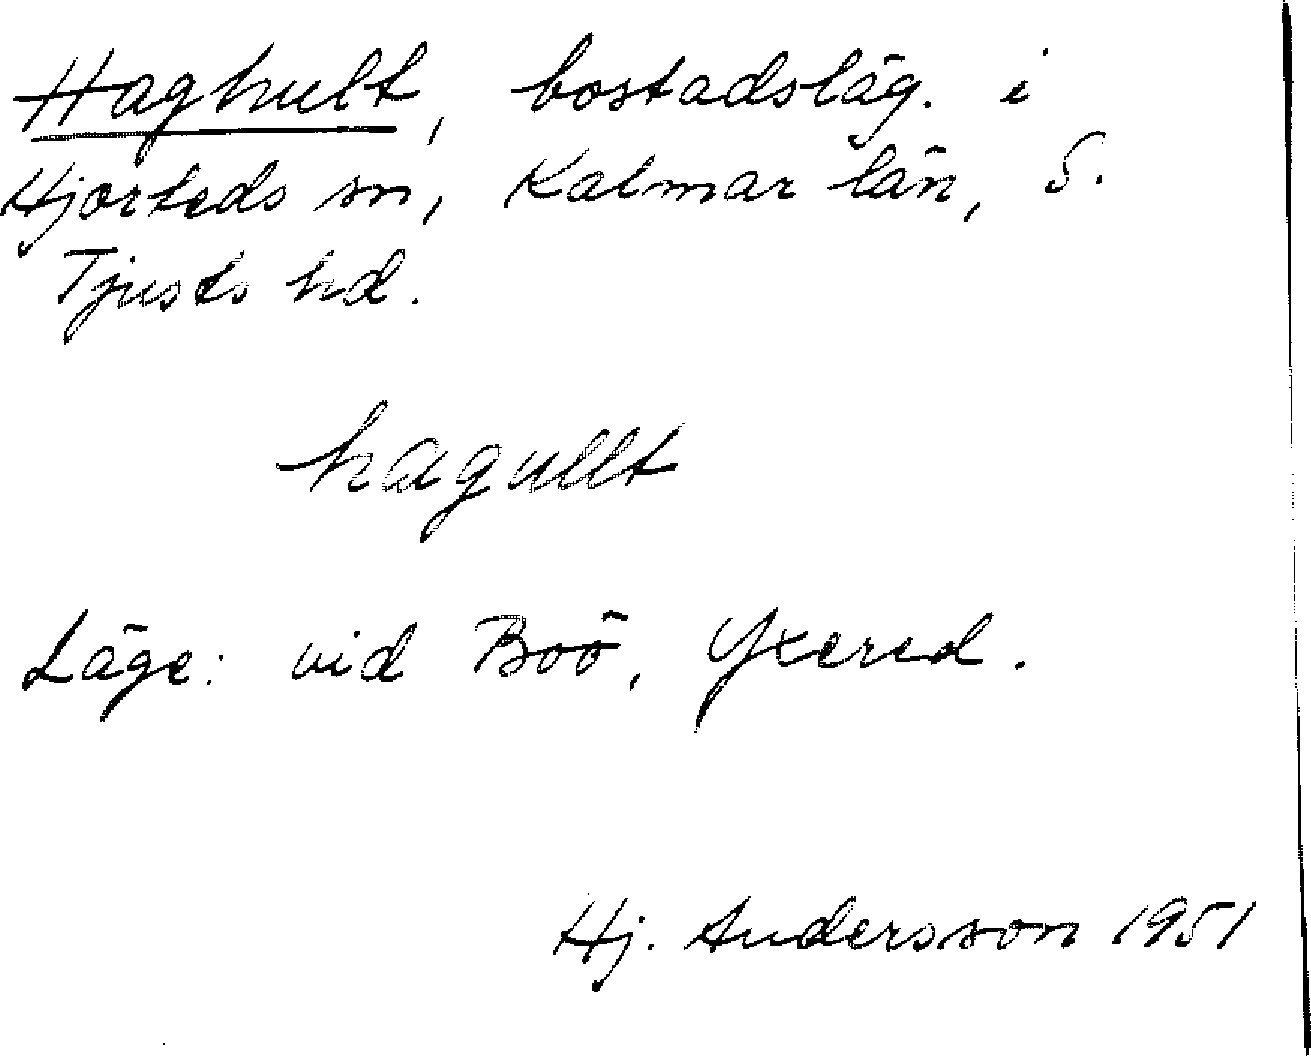 Haghult, bostadsläg. i
Hjorteds sn, Kalmar län, S.
Tjusts hd.
hagullt
Läge: vid Boö, Yxered.
Hj. Andersson 1951